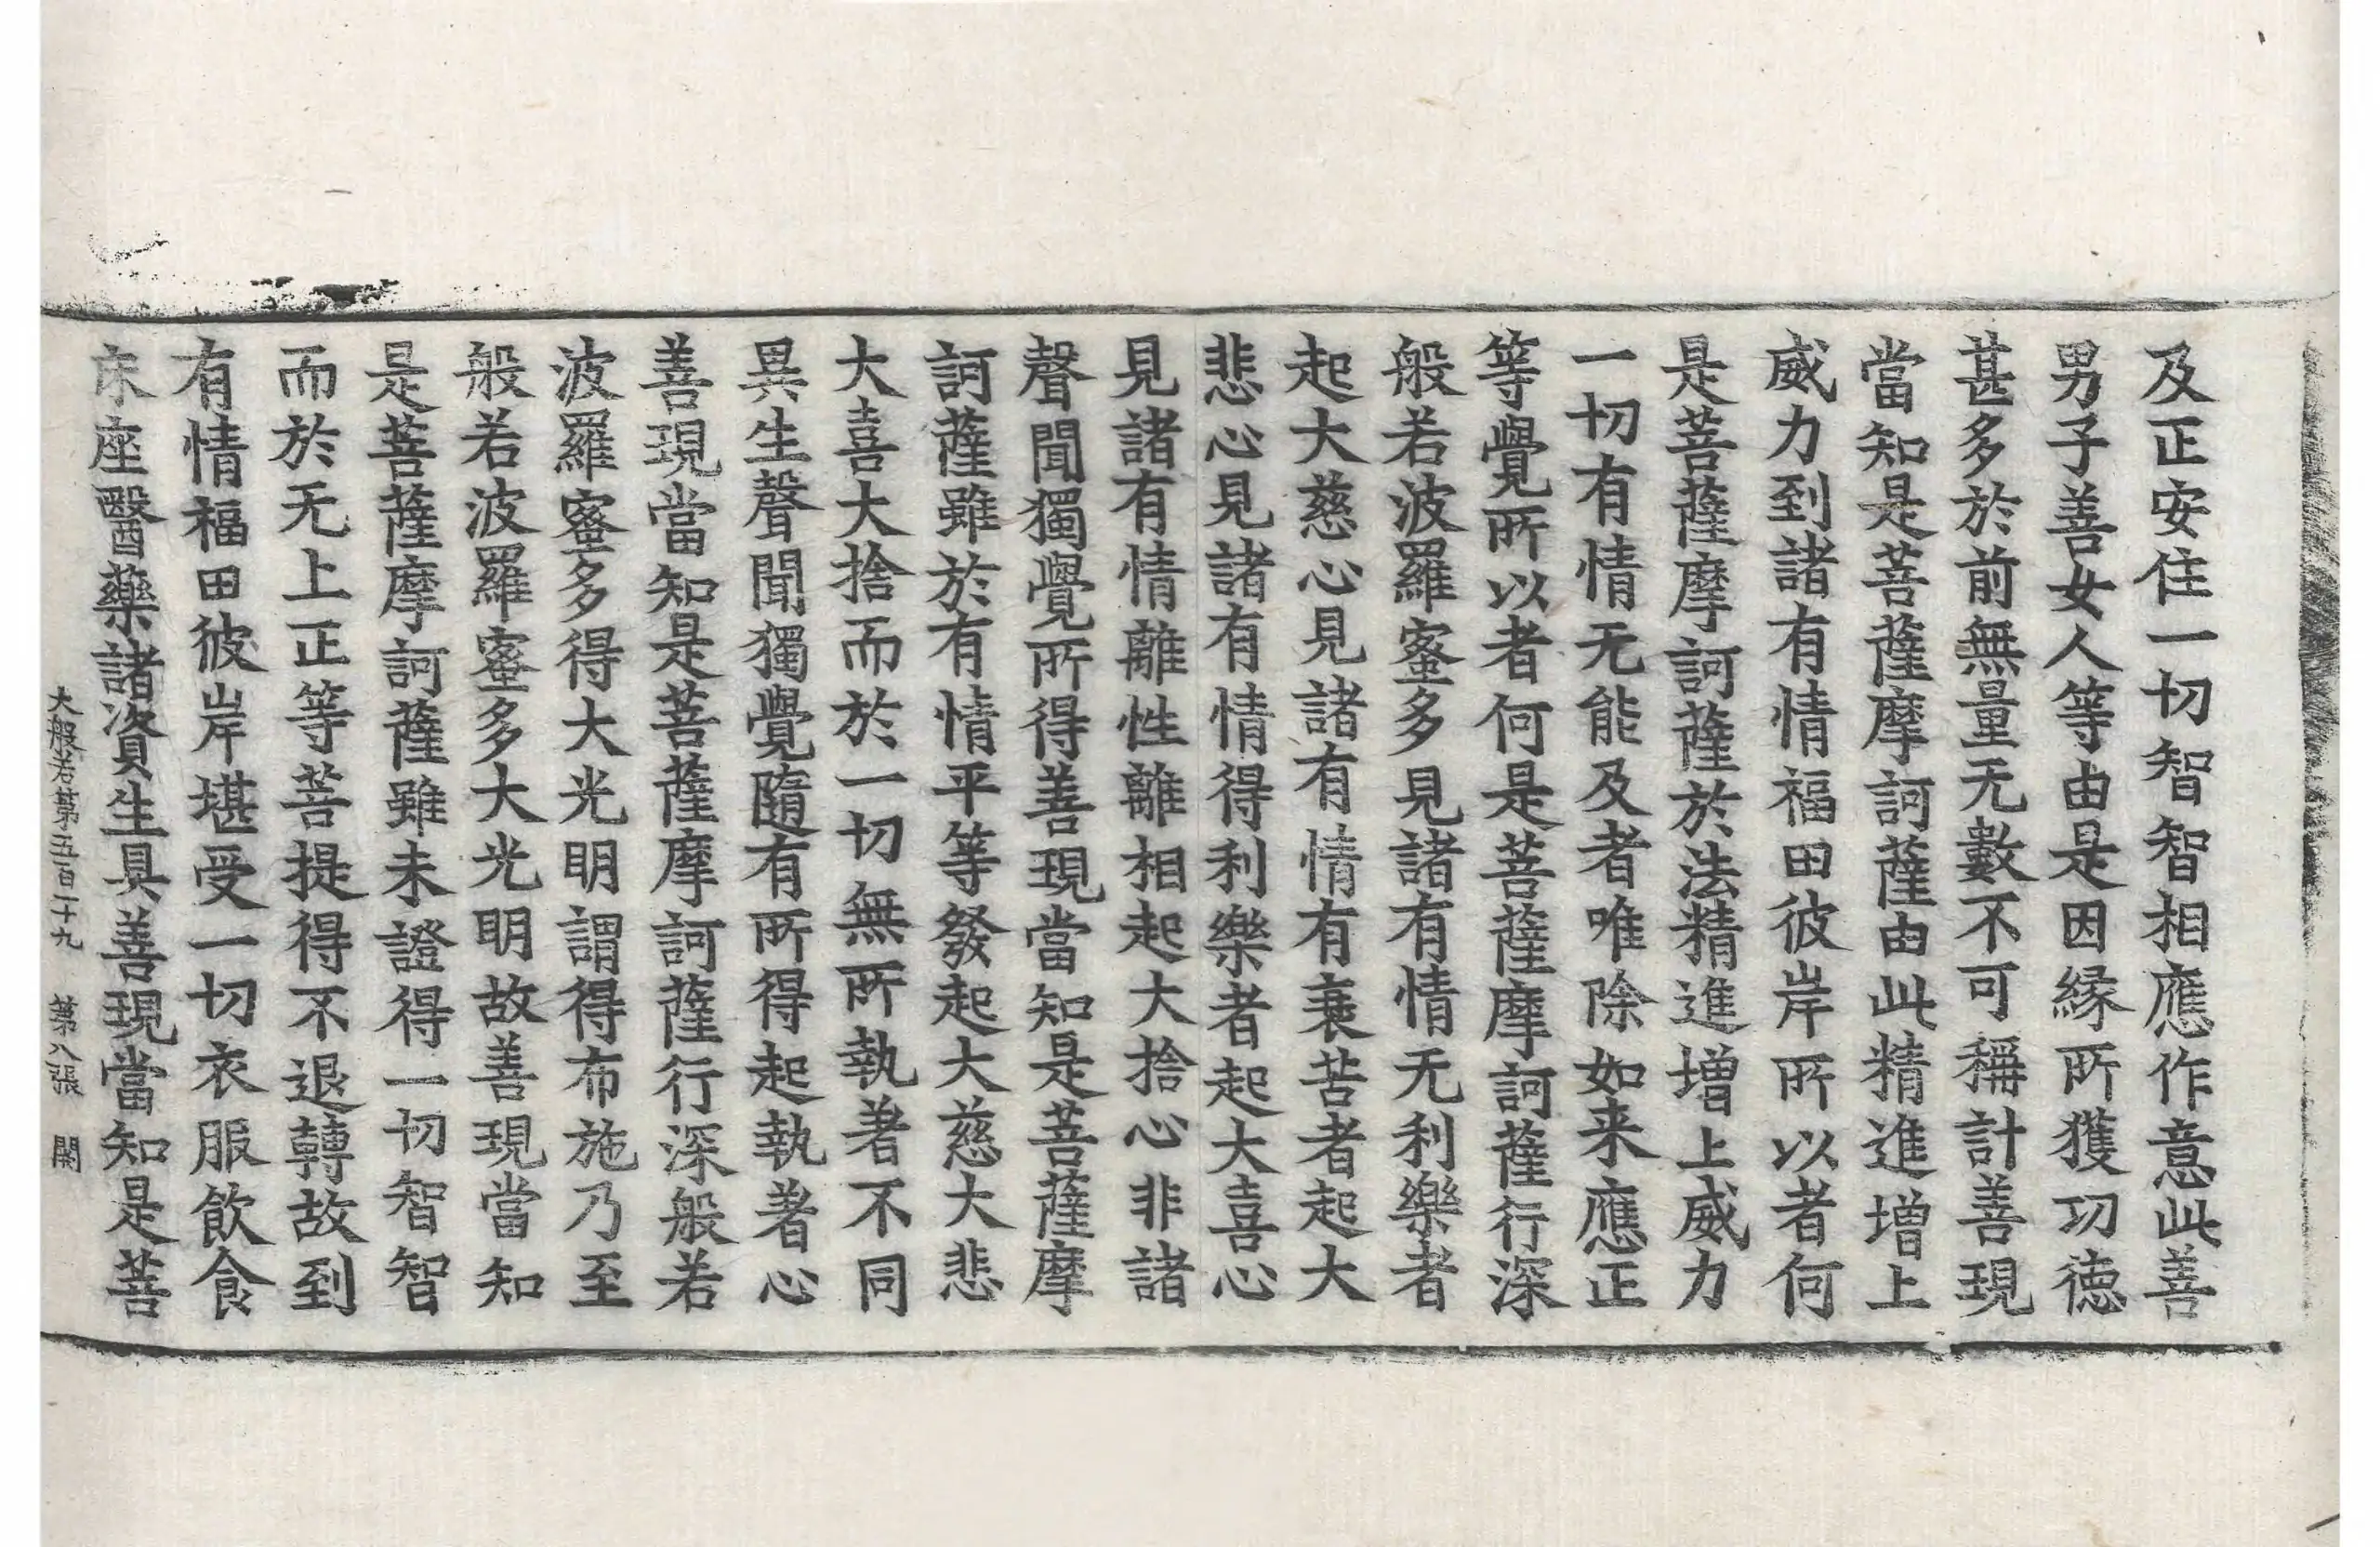 及正安住一切智智相應作意此善
男子善女人等由是因縁所獲功徳
甚多於前無量无數不可稱計善現
當知是菩薩摩訶薩由此精進增上
威力到諸有情福田彼岸所以者何
是菩薩摩訶薩於法精進增上威力
一切有情无能及者唯除如来應正
等覺所以者何是菩薩摩訶薩行深
般若波羅蜜多見諸有情无利樂者
起大慈心見諸有情有衰苦者起大
悲心見諸有情得利樂者起大喜心
見諸有情離性離相起大捨心非諸
聲聞獨覺所得善現當知是菩薩摩
訶薩雖於有情平等發起大慈大悲
大喜大捨而於一切無所執著不同
異生聲聞獨覺隨有所得起執著心
善現當知是菩薩摩訶薩行深般若
波羅蜜多得大光明謂得布施乃至
般若波羅蜜多大光明故善現當知
是菩薩摩訶薩雖未證得一切智智
而於无上正等菩提得不退轉故到
有情福田彼岸堪受一切衣服飲食
床座醫藥諸資生具善現當知是菩
大般若第五百二十九　第八張　闕